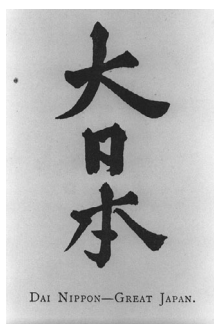 大日本
DAI NIPPON—GREAT JAPAN.